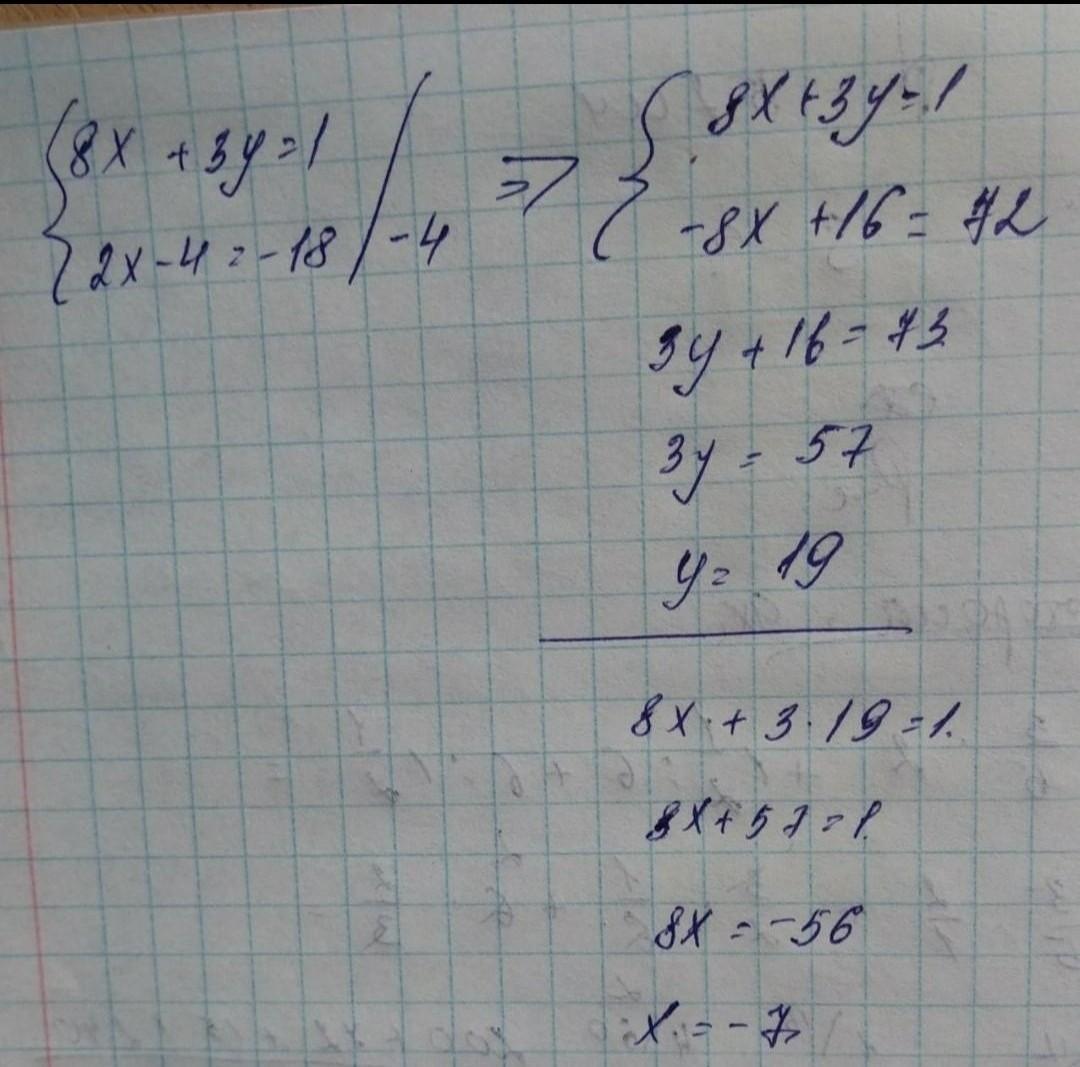 8x + 3y = 1
2x - 4 = -18 | -4
=>
8x + 3y = 1
-8x + 16 = 72
3y + 16 = 73
3y = 57
y = 19
8x + 3 · 19 = 1.
8x + 57 = 1.
8x = -56
x = -7